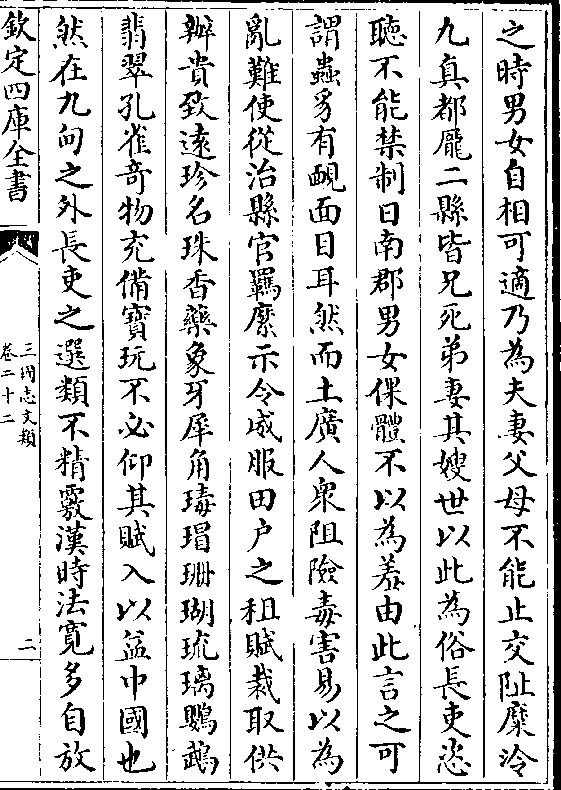 之時男女自相可適乃為夫妻父母不能止交阯糜泠
九真都龐二縣皆兄死弟妻其嫂世以此為俗長吏恣
聽不能禁制日南郡男女倮體不以為羞由此言之可
謂蟲豸有靦面目耳然而土廣人衆阻險毒害易以為
亂難使從治縣官羈縻示令威服田户之租賦裁取供
辦貴致逺珍名珠香藥象牙犀角瑇瑁珊瑚琉璃鸚鵡
翡翠孔雀竒物充備寳玩不必仰其賦入以益中國也
然在九甸之外長吏之選類不精覈漢時法寛多自放
欽定四庫全書
三國志文類
卷二十二
二